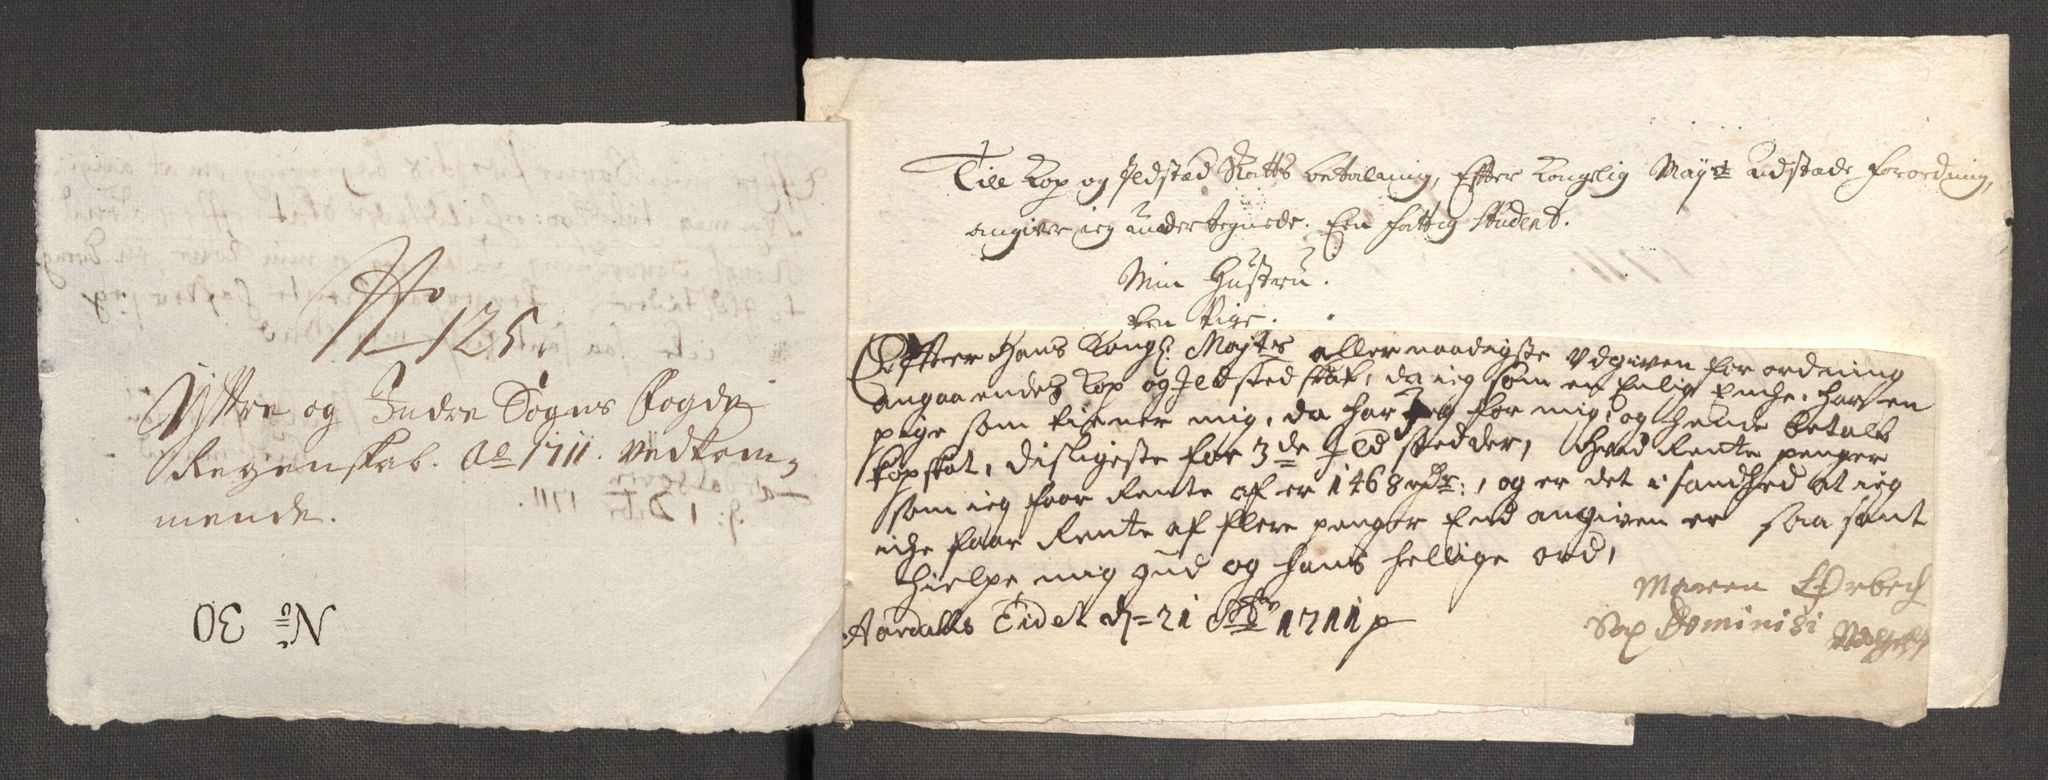 125.
Yttre og Indre Sogns Fogdj
Regenskab. Ao 1711. vedkom-
mende.
No 30
Till Kop og Ildstæd Skatts betalning, Effter Kongelig Mayts Udstæde Forordning,
angiver ieg undertegnede. Een fattig Student.
Min Hustru.
Een Pige.
Effter Hans Kongl. Mayts allernaadigste Udgiven forordning
angaaendes Kop og Ildsted skat, da ieg som er Enlig Enche, har en
pige som tiener mig, da har Jeg for mig, og hende betalt
kopskat, disligeste for 3de Ild stedder, hvad Rente penger
som ieg faar Rente af er 1468 rdr:, og er det i sandhed at ieg
iche faar Rente af flere penger End angiven er saa sant
hielpe mig gud og hans hellige ord,
Maren
Aardalls Eidet d= 21 1711
Sax Dominisi